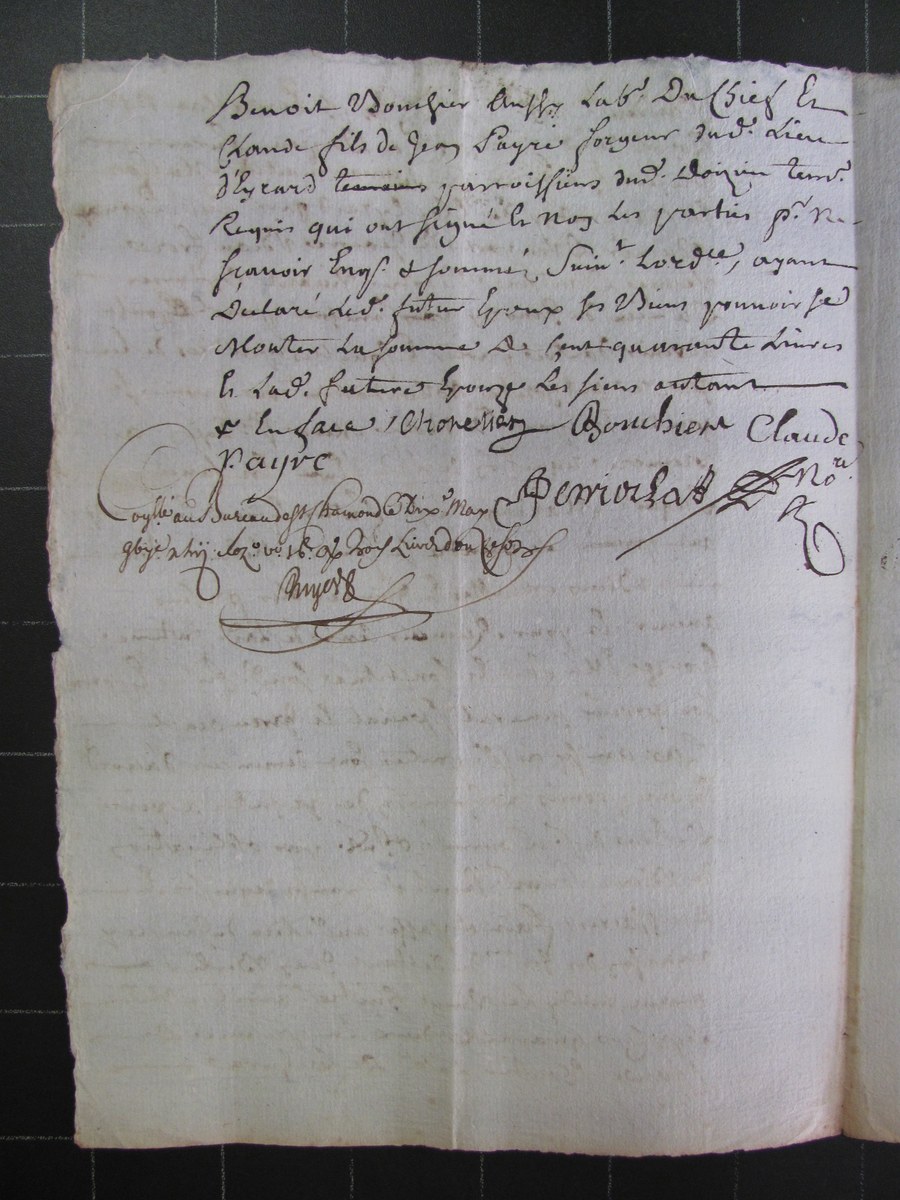 Benoit Bouchier aussy Lab.r Du Chief Et
Claude fils de Jean Payre forgeur dud. Lieu
d'Eyrard temoins parroissiens dud. Doizieu tem.s
Requis qui ont signé Et Non Les parties p.r Ne
sçavoir Enq.s & sommés Suiv.t Lord.ce, ayant
Declaré Led. futur Epoux ses Biens pouvoir se
Monter La somme de Cent quarante Livres
Et Lad. future Epouze Les siens autant
En face, Bouchier Claude
Payre
Perriolat No.re
au Bureau de St Chamond Le Dix.e May